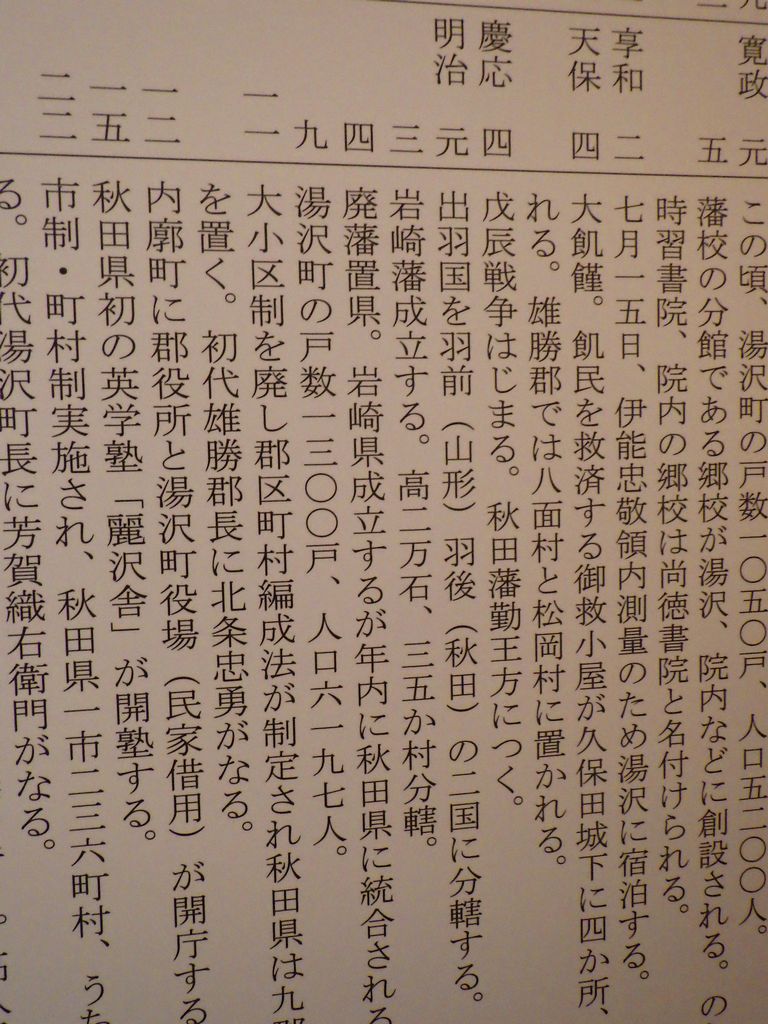 寛政 元 この頃、湯沢町の戸数一〇五〇戸、人口五二〇〇人。
五 藩校の分館である郷校が湯沢、院内などに創設される。の
時習書院、院内の郷校は尚徳書院と名付けられる。
享和 二 七月一五日、伊能忠敬領内測量のため湯沢に宿泊する。
天保 四 大飢饉。飢民を救済する御救小屋が久保田城下に四か所、
れる。雄勝郡では八面村と松岡村に置かれる。
慶応 四 戊辰戦争はじまる。秋田藩勤王方につく。
明治 元 出羽国を羽前（山形）羽後（秋田）の二国に分轄する。
三 岩崎藩成立する。高二万石、三五か村分轄。
四 廃藩置県。岩崎県成立するが年内に秋田県に統合される
九 湯沢町の戸数一三〇〇戸、人口六一九七人。
一一 大小区制を廃し郡区町村編成法が制定され秋田県は九郡
を置く。初代雄勝郡長に北条忠勇がなる。
一二 内廓町に郡役所と湯沢町役場（民家借用）が開庁する
一五 秋田県初の英学塾「麗沢舎」が開塾する。
二二 市制・町村制実施され、秋田県一市二三六町村、うち
る。初代湯沢町長に芳賀織右衛門がなる。